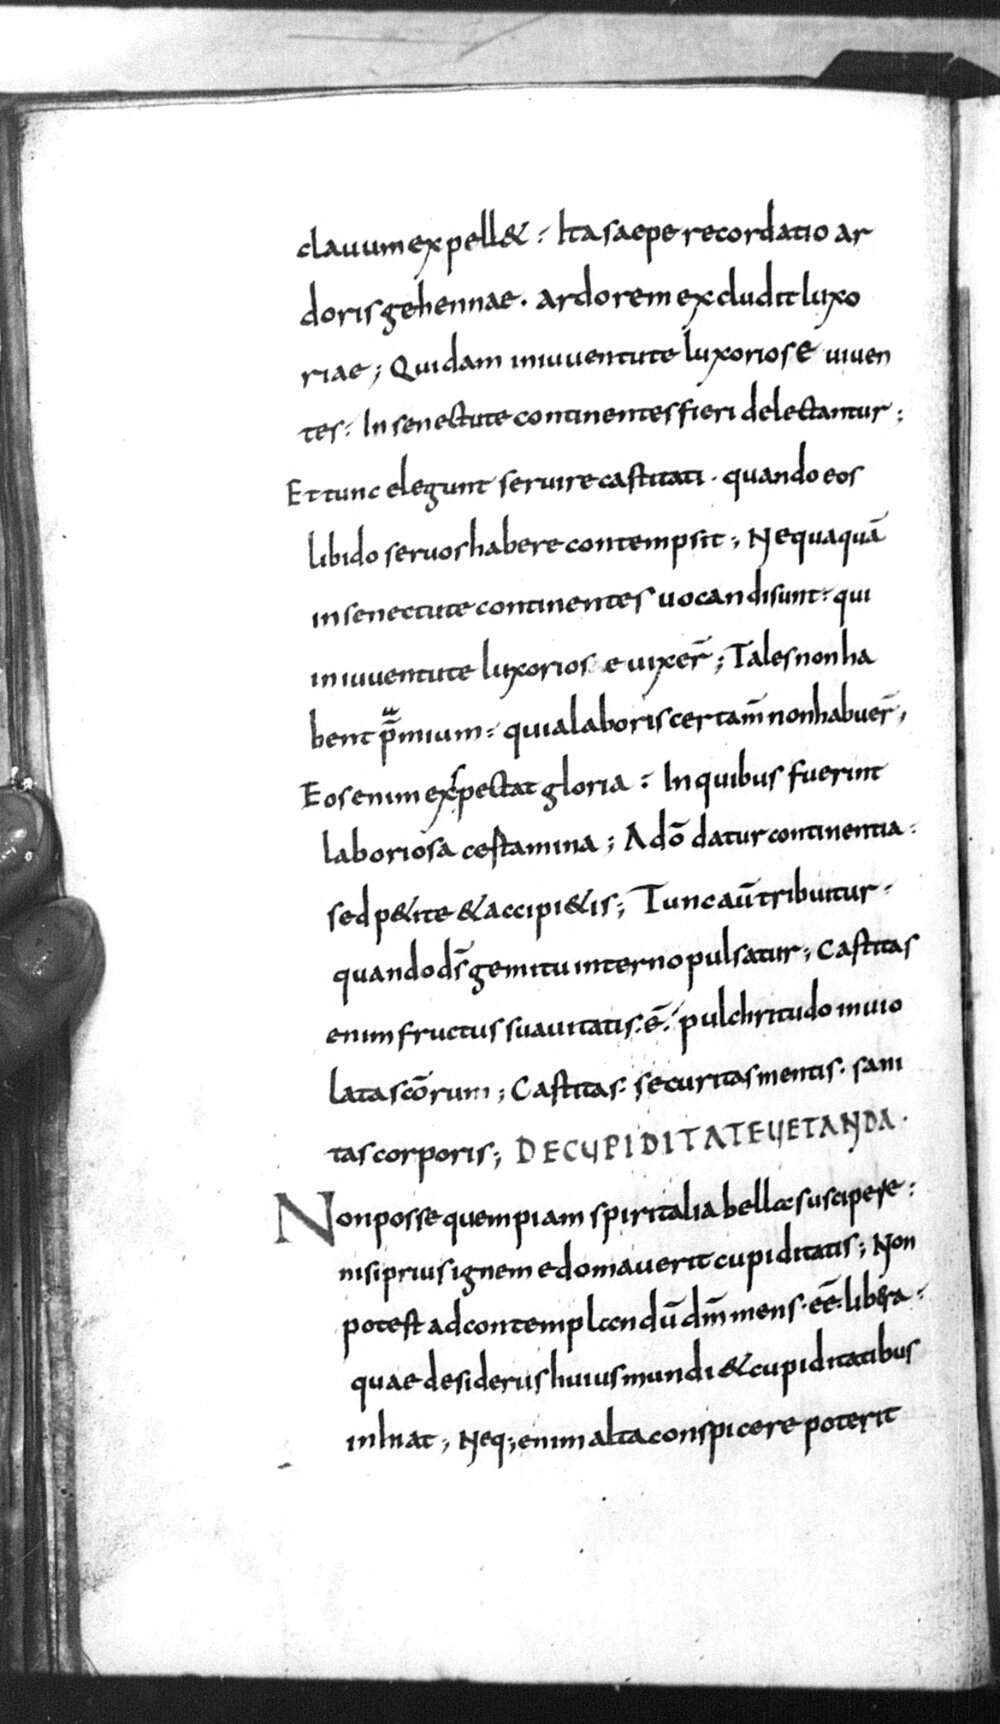 clauum expell& : Ita saepe recordatio ar
doris gehennae. ardorem excludit luxo
riae; Quidam in iuuentute luxoriose uiuen
tes: In senectute continentes fieri delectantur;
Et tunc elegunt seruire castitati. quando eos
libido seruos habere contempsit; Nequaquā
in senectute continentes uocandi sunt: qui
in iuuentute luxoriose uixer̄; Tales non ha
bent p̄mium: quia laboris certam̄ non habuer̄;
Eos enim exspectat gloria : In quibus fuerint
laboriosa cestamina; A dō datur continentia:
sed p&ite & accipi&is; Tunc aū tribuitur:
quando ds̄ gemitu interno pulsatur; Castitas
enim fructus suauitatis. ē. pulchritudo inuio
lata scōrum; Castitas: securitas mentis. sani
tas corporis; DE CUPIDITATE UETANDA.
Non posse quempiam spiritalia bella suscipere:
nisi prius ignem edomauerit cupiditatis; Non
potest ad contemplandū dm̄ mens. eē. libera:
quae desideriis huius mundi & cupiditatibus
inhiat; Neq; enim alta conspicere poterit